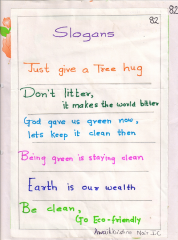 82
82
Slogans
Just give a Tree hug
Don't litter,
it makes the world bitter
God gave us green now,
lets keep it clean then
Being green is staying clean
Earth is our wealth
Be clean,
Go Eco-friendly
Nair I.C